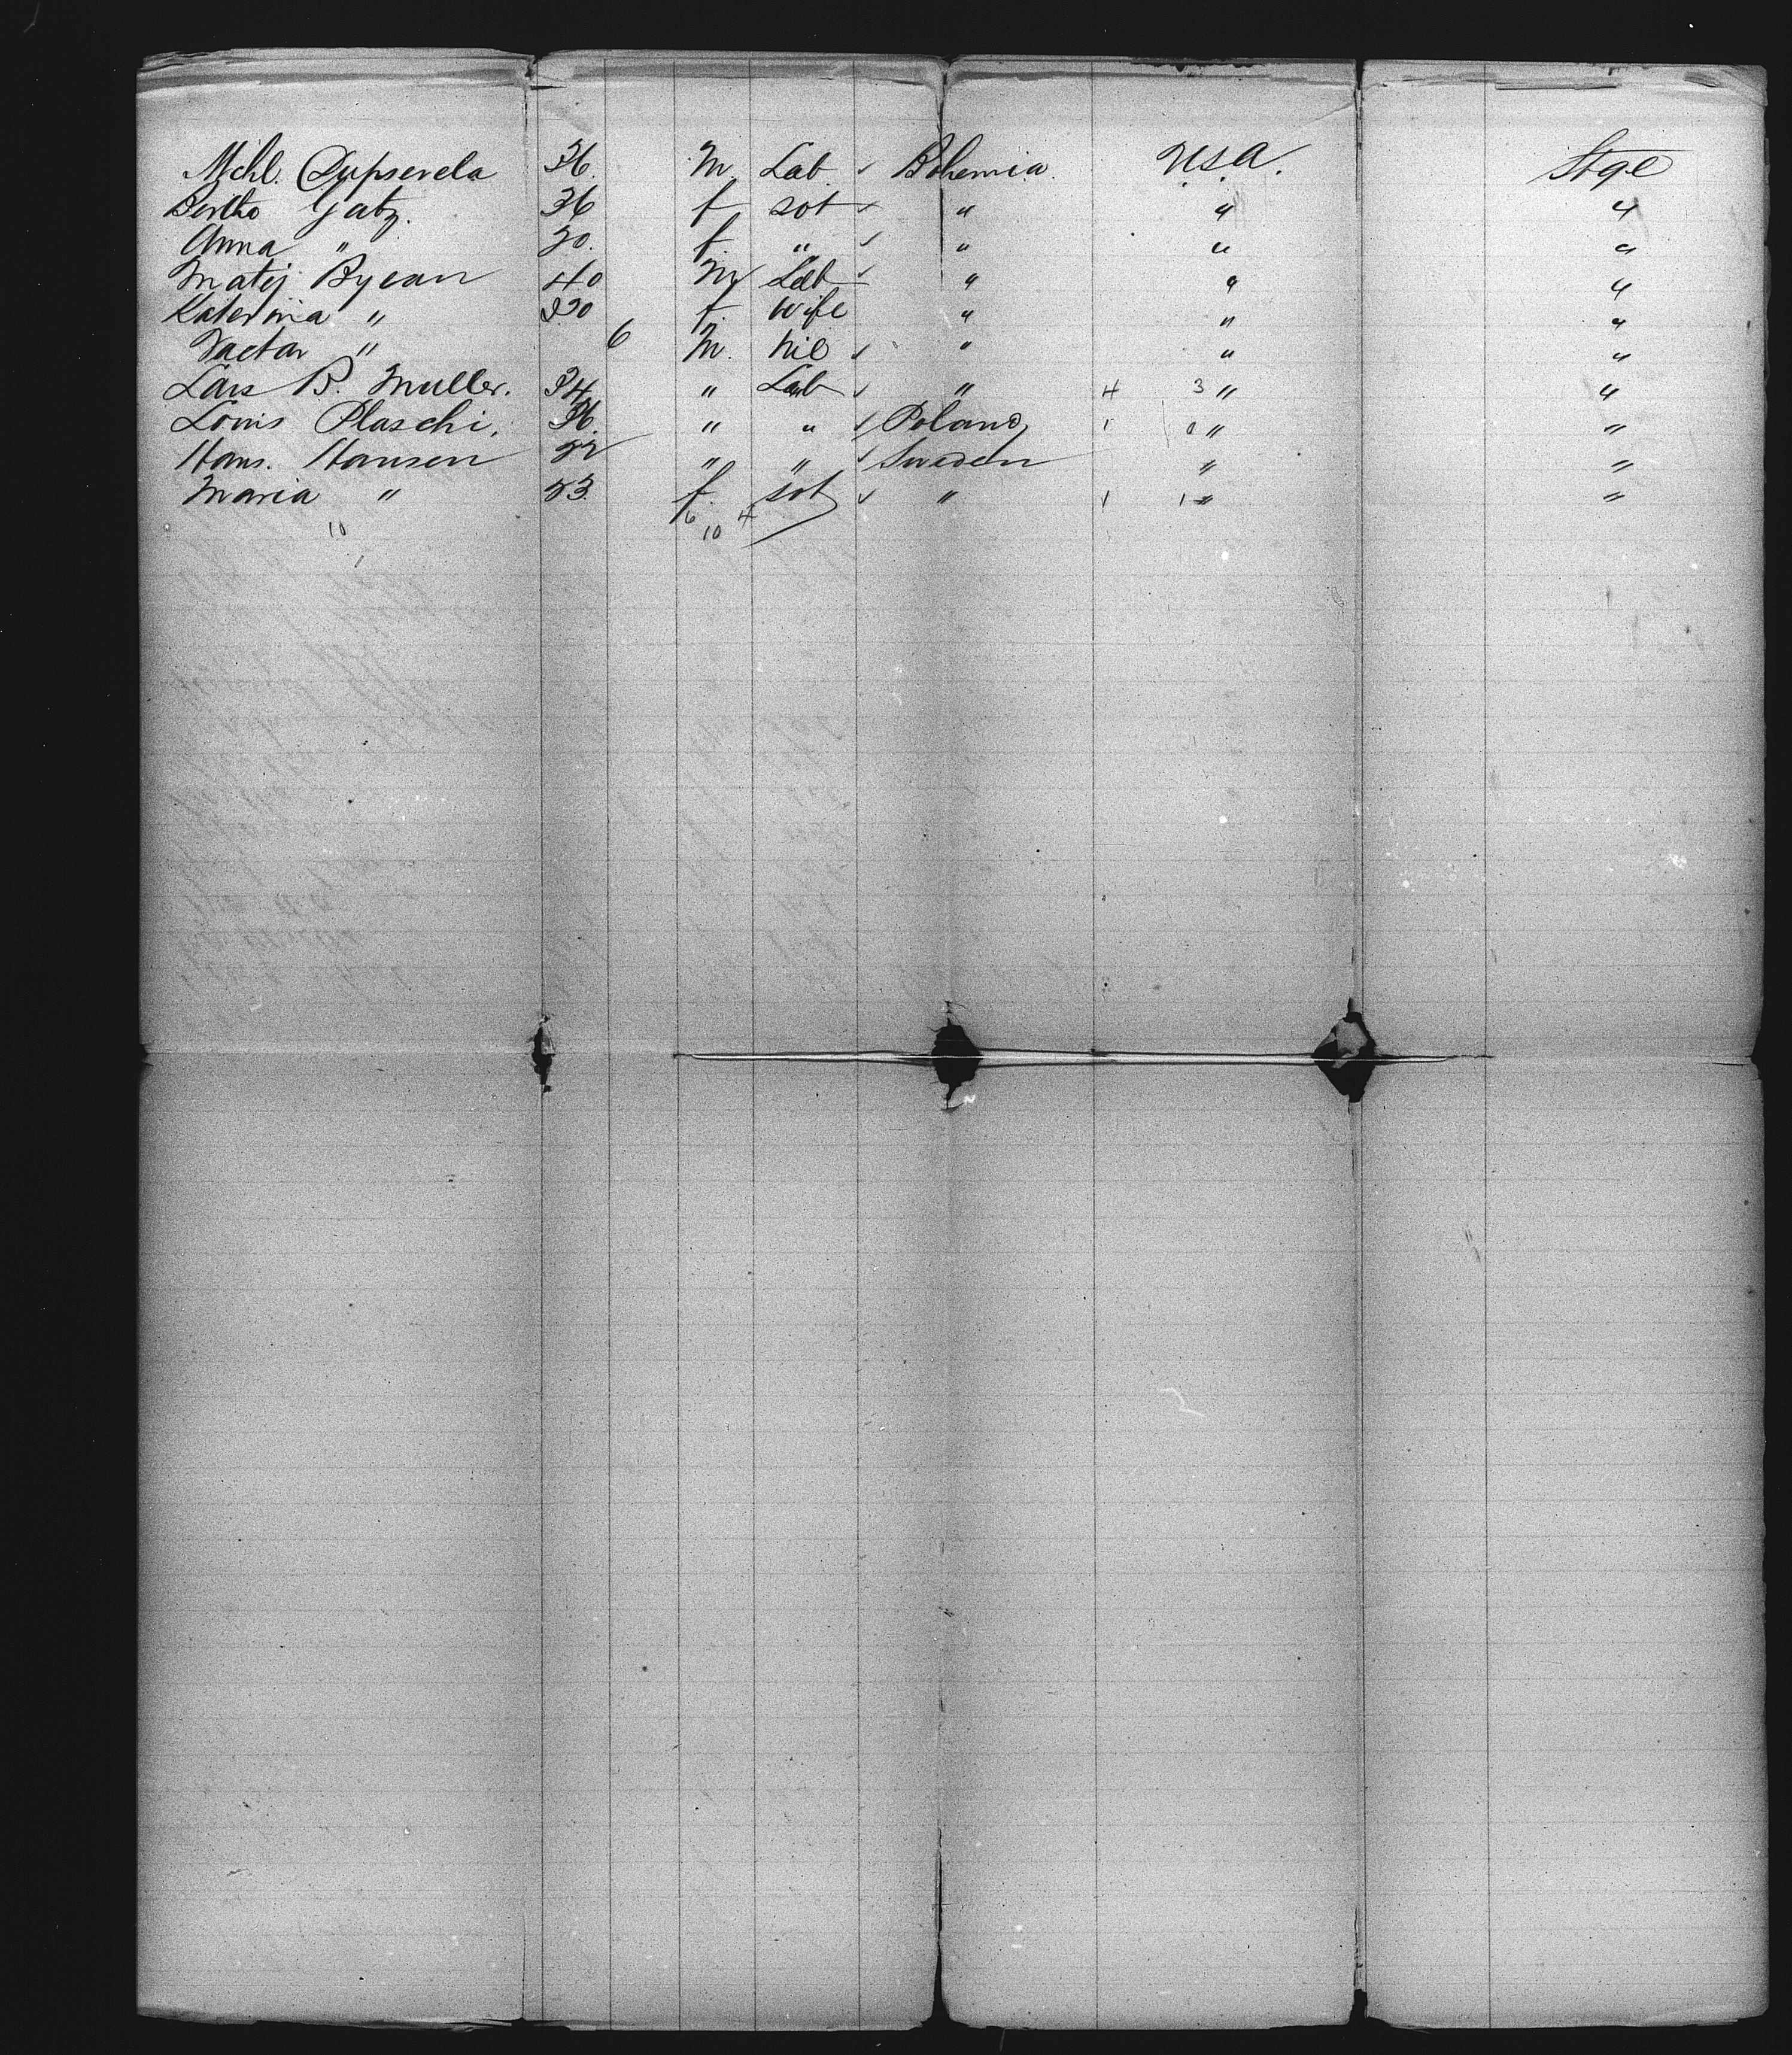 Mchl. Dupsevela 36. M. Lab. ✓ Bohemia. U.S.A. Stge
Bertha Gatz. 36 f sot ✓ " " "
Anna " 20. f. " ✓ " " "
Matij Bycan 40 M Lab ✓ " " "
Katerina " 30 f. Wife " " "
" 6 M. Nil ✓ " " "
Lars B. Muller. 34 " Lab ✓ " 4 3 " "
Louis Plaschi. 36. " " ✓ Poland 1 0 " "
Hans. Hansen 22 " " ✓ Sweden " "
Maria " 23. f. sot ✓ " 1 1 " "
6 4
10 10